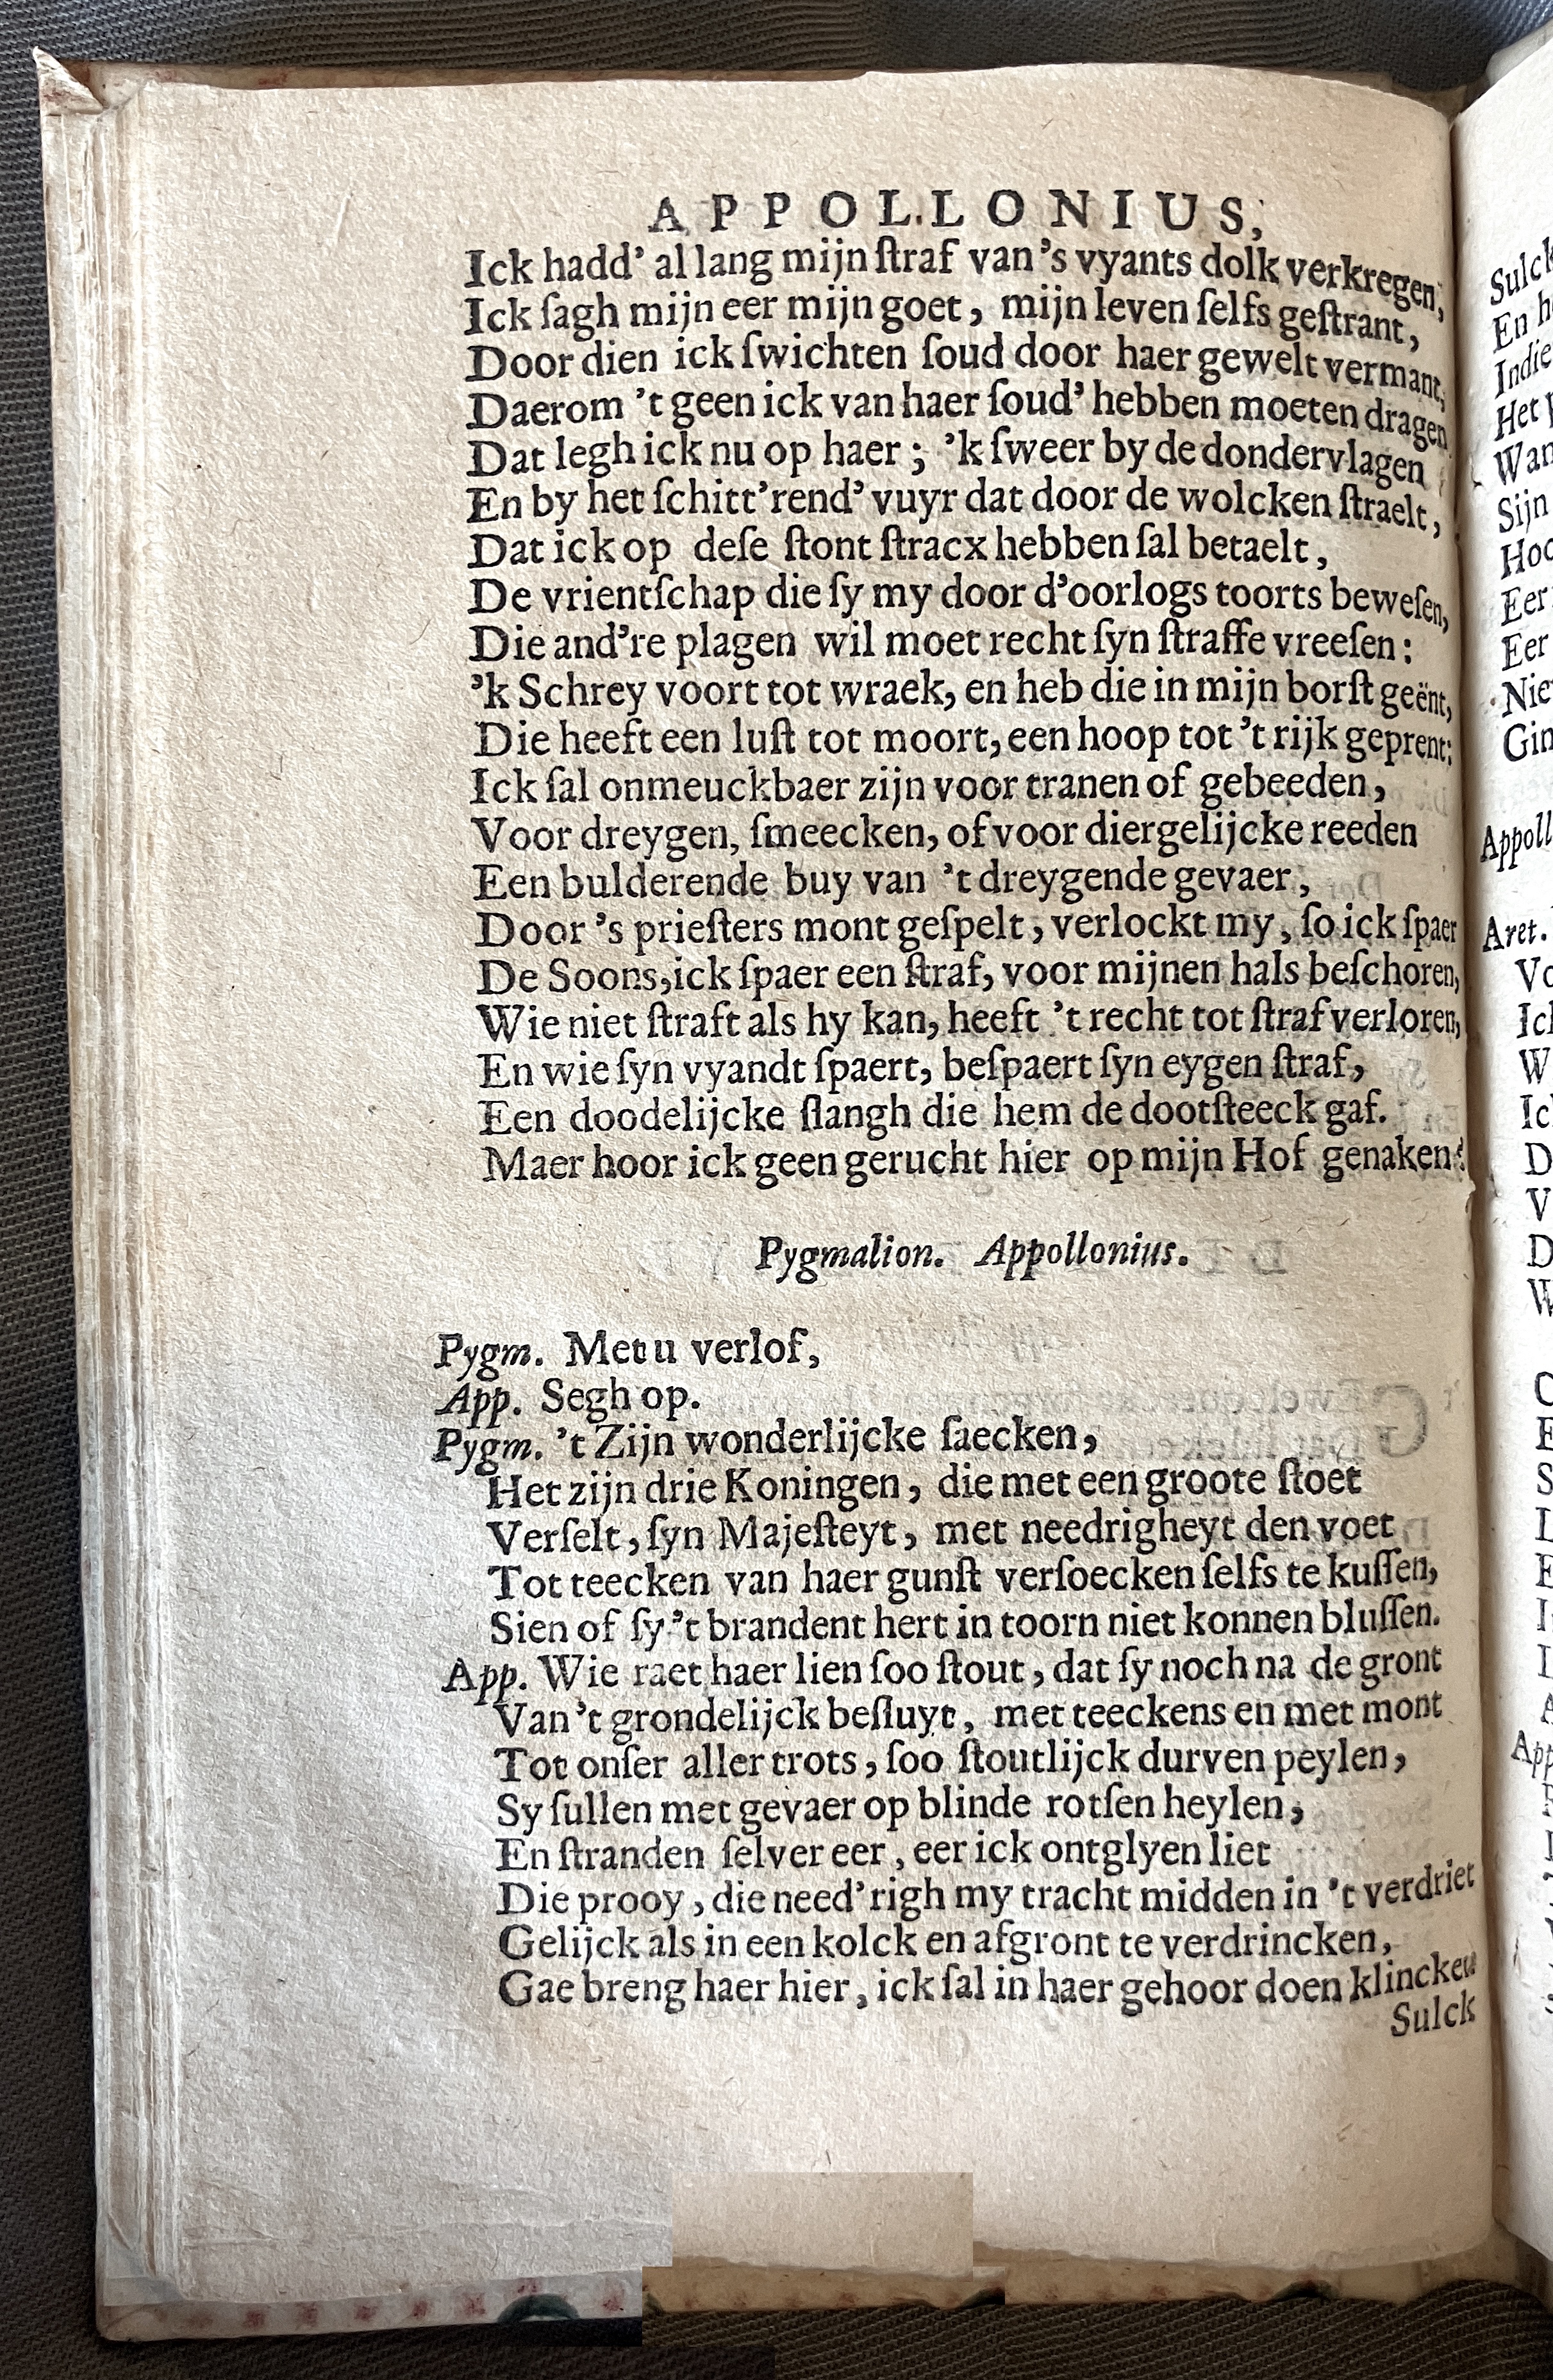 APPOLLONIUS,
Ick hadd' al lang mijn ſtraf van's vyants dolk verkregen;
Ick ſagh mijn eer mijn goet, mijn leven ſelfs geſtrant,
Door dien ick ſwichten ſoud door haer gewelt vermant,
Daerom 't geen ick van haer ſoud' hebben moeten dragen
Dat legh ick nu op haer; 'k ſweer by de dondervlagen
En by het ſchitt'rend' vuyr dat door de wolcken ſtraelt,
Dat ick op deſe ſtont ſtracx hebben ſal betaelt,
De vrientſchap die ſy my door d'oorlogs toorts beweſen,
Die and're plagen wil moet recht ſyn ſtraffe vreeſen:
'k Schrey voort tot wraek, en heb die in mijn borſt geënt,
Die heeft een luſt tot moort, een hoop tot 't rijk geprent:
Ick ſal onmeuckbaer zijn voor tranen of gebeeden,
Voor dreygen, ſmeecken, of voor diergelijcke reeden
Een bulderende buy van 't dreygende gevaer,
Door 's prieſters mont geſpelt, verlockt my, ſo ick ſpaer
De Soons, ick ſpaer een ſtraf, voor mijnen hals beſchoren,
Wie niet ſtraft als hy kan, heeft 't recht tot ſtraf verloren,
En wie ſyn vyandt ſpaert, beſpaert ſyn eygen ſtraf,
Een doodelijcke ſlangh die hem de dootſteeck gaf.
Maer hoor ick geen gerucht hier op mijn Hof genaken?
Pygmalion. Appollonius.
Pygm. Met u verlof,
App. Segh op.
Pygm. 't Zijn wonderlijcke ſaecken,
Het zijn drie Koningen, die met een groote ſtoet
Verſelt, ſyn Majeſteyt, met needrigheyt den voet
Tot teecken van haer gunſt verſoecken ſelfs te kuſſen,
Sien of ſy 't brandent hert in toorn niet konnen bluſſen.
App. Wie raet haer lien ſoo ſtout, dat ſy noch na de gront
Van 't grondelijck beſluyt, met teeckens en met mont
Tot onſer aller trots, ſoo ſtoutlijck durven peylen,
Sy ſullen met gevaer op blinde rotſen heylen,
En ſtranden ſelver eer, eer ick ontglyen liet
Die prooy, die need'righ my tracht midden in 't verdriet
Gelijck als in een kolck en afgront te verdrincken,
Gae breng haer hier, ick ſal in haer gehoor doen klincken
Sulck